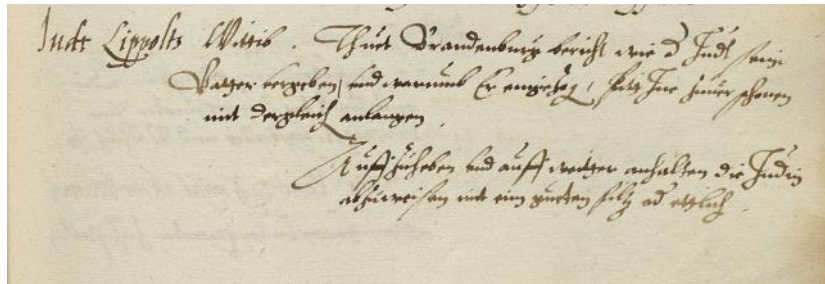 Judt Lippolts Wittib. Thuet Brandenburg bericht wie d Judt sein
Vatter vergeben, und warumb Er eingezog, bitt Ine hinür schonen
mit dergleich anlangen.
Auffzuheben und auff weitter anhalten die Judin
abzuweisen mit eim guetten filtz od ettlich.